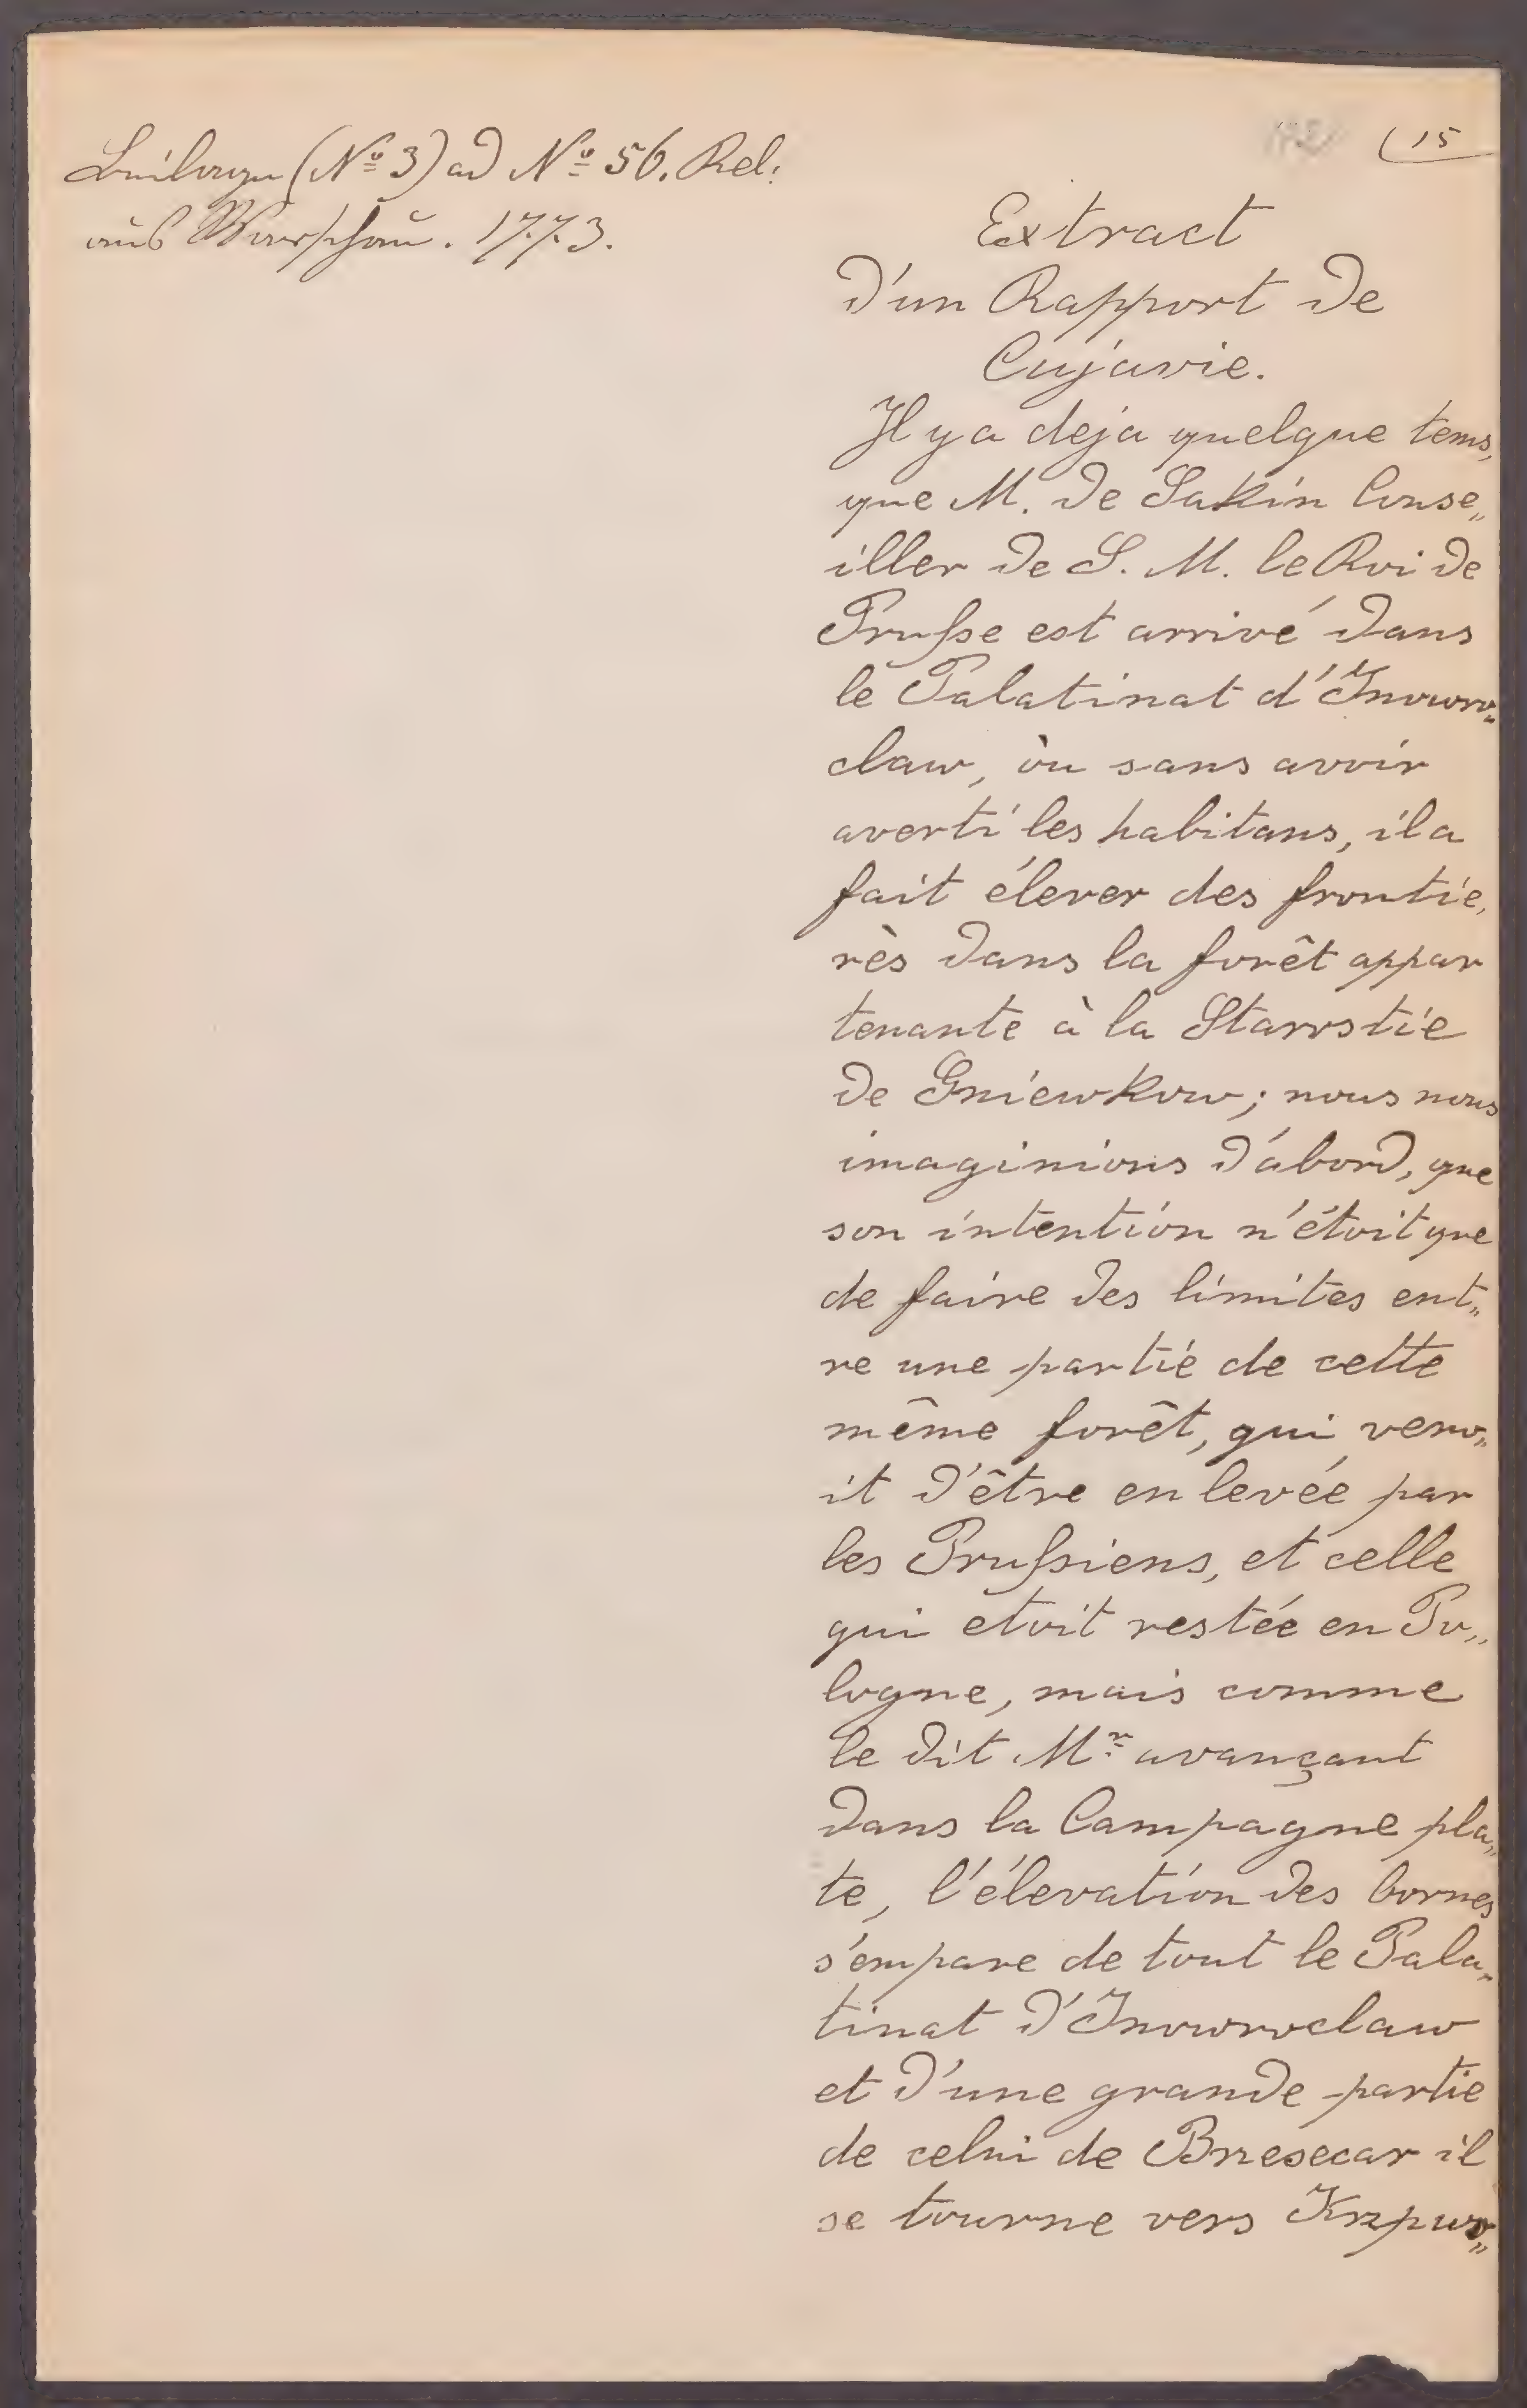 Beilage (Nº 3) ad Nº 56. Rel:
aus Warschau. 1773.
(15
Extract
d'un Rapport de
Cujavie.
Il y a deja quelque tems,
que M. de Sakin Conse„
iller de S. M. le Roi de
Prusse est arrivé dans
le Palatinat d'Inowro„
claw, òu sans avoir
averti les habitans, il a
fait élever des frontie„
rès dans la forêt appar
tenante à la Starostie
de Gniewkow; nous nous
imaginions d'abord, que
son intention n'étoit que
de faire des limites ent„
re une partie de cette
même forêt, qui veno„
it d'être enlevée par
les Prussiens, et celle
qui etoit restée en Po„
logne, mais comme
le dit Mr. avançant
dans la Campagne pla„
te, l'élevation des bornes
s'empare de tout le Pala„
tinat d'Inowroclaw
et d'une grande partie
de celui de Brzesecar il
se tourne vers Krzpwo„